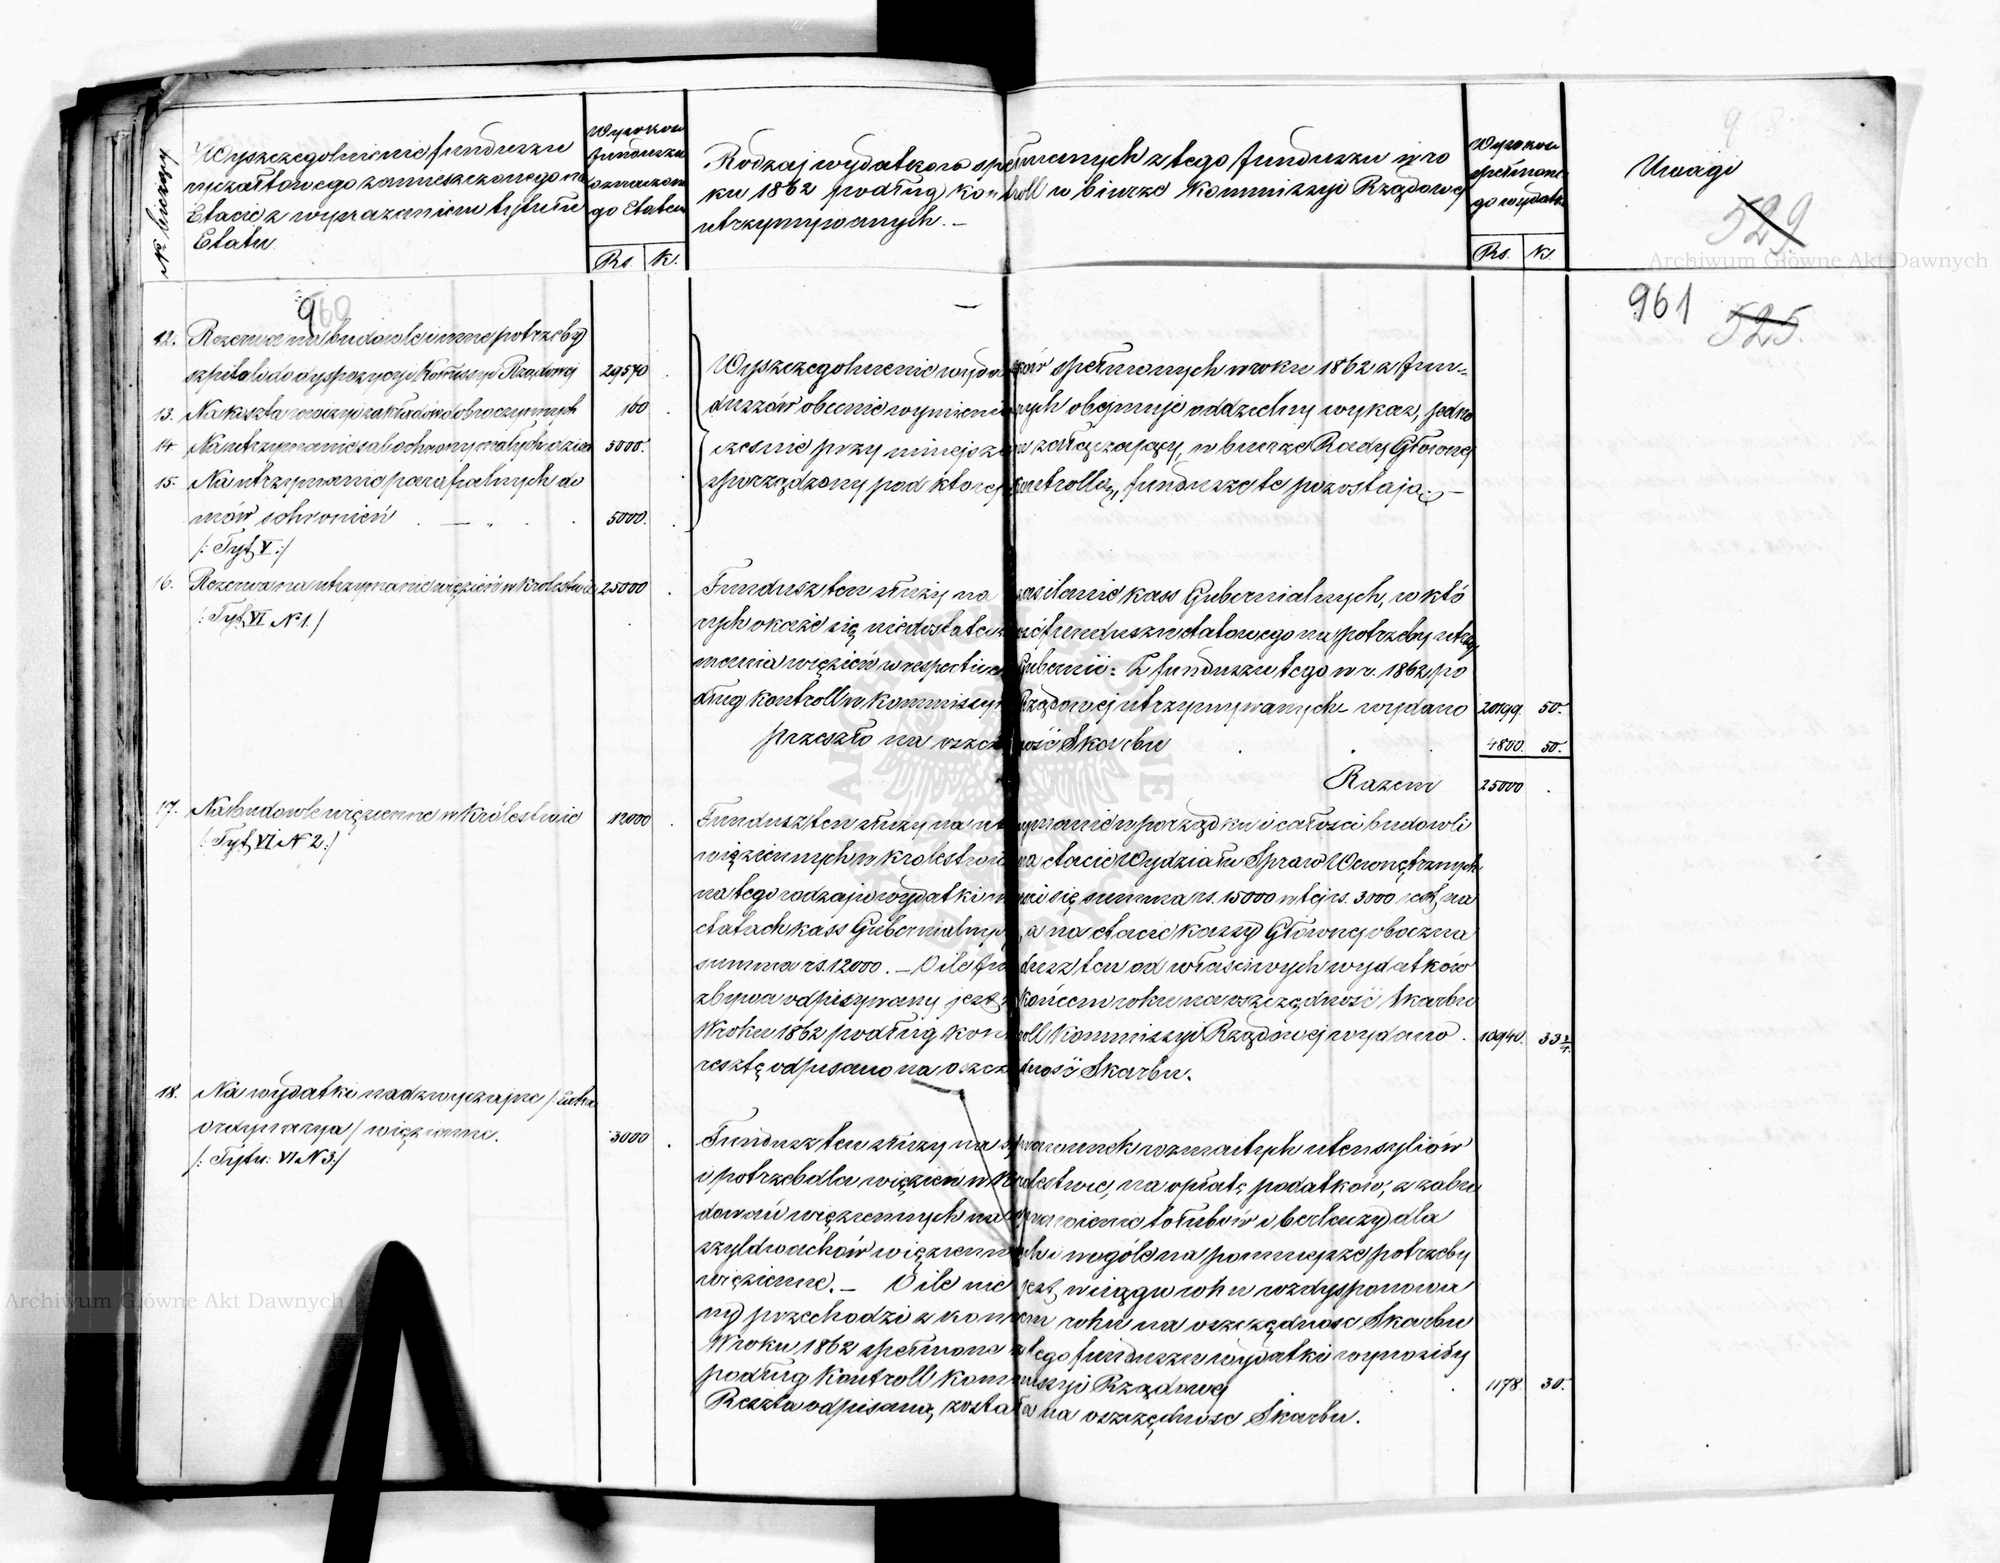 № bieżący
Wyszczególnienie funduszu
ryczałtowego zamieszczonego na
Etacie z wyrażeniem tytułu
Etatu.
Wysokość
funduszu
oznaczone
go Etatem
Rs. K.
Rodzaj wydatków spełnionych z tego funduszu w ro
ku 1862 podług kontroll w biurze Kommissyi Rządowej
utrzymywanych. —
Wysokość
spełnione
go wydatku
Rs. K.
Uwagi
529
961
525.
960
12. Rezerwa na budowle i inne potrzeby
szpitali do dyspozycyi Kommissyi Rządowej 29570
13. Na koszta rewizyi zakładów dobroczynnych 160
14. Na utrzymanie sal ochrony małych dzieci 5000.
15. Na utrzymanie parafialnych do
mów schronień 5000.
/: Tyt. V :/
Wyszczególnienie wydatków spełnionych w roku 1862 z fun=
duszów obecnie wymienionych obejmuje oddzielny wykaz, jedno
cześnie przy niniejszem załączający, w biurze Rady Głównej
sporządzony pod której kontrollą, fundusze te pozostają. —
16. Rezerwa na utrzymanie więzień w Królestwie 25000
/: Tyt. VI N 1. /
Fundusz ten służy na zasilenie kass Gubernialnych, w któ
rych okaże się niedostateczność funduszu etatowego na potrzeby utrzy
mania więzień w respective Gubernii: Z funduszu tego w r. 1862 po
dług kontroll w Kommissyi Rządowej utrzymywanych wydano 20199. 50.
przeszło na oszczędność Skarbu 4800. 50.
Razem 25000
17. Na budowle więzienne w Królestwie 12000
/: Tyt. VI N 2:/
Fundusz ten służy na utrzymanie w porządku i całości budowli
więziennych w Królestwie na etacie Wydziału Spraw Wewnętrznych
na tego rodzaju wydatki mieści się summa rs. 15000 w tej rs. 3000 jest, na
etatach kass Gubernialnych, a na etacie kassy Głównej obecna
summa rs. 12000. — O ile fundusz ten od właściwych wydatków
zbywa odpisywany jest z końcem roku na oszczędność Skarbu
W roku 1862 podług kontroll Kommissyi Rządowej wydano 10940. 33 3/4.
resztę odpisano na oszczędność Skarbu.
18. Na wydatki nadzwyczajne /: Extra
ordynarya / więzienne. 3000
/: Tytu: VI N 3:/
Fundusz ten służy na sprawunek rozmaitych utensyliów
i potrzeb dla więzień w Królestwie, na opłatę podatków, z zabu
dowań więziennych na sprawienie tołubów i berlaczy dla
szyldwachów więziennych i wogóle na pomniejsze potrzeby
więzienne. — O ile nie jest, w ciągu roku rozdysponowa
ny przechodzi z końcem roku na oszczędność Skarbu
W roku 1862 spełnione z tego funduszu wydatki wynosiły
podług Kontroll Kommissyi Rządowej 1178 30.
Reszta odpisaną, została na oszczędność Skarbu.
Archiwum Główne Akt Dawnych
Archiwum Główne Akt Dawnych